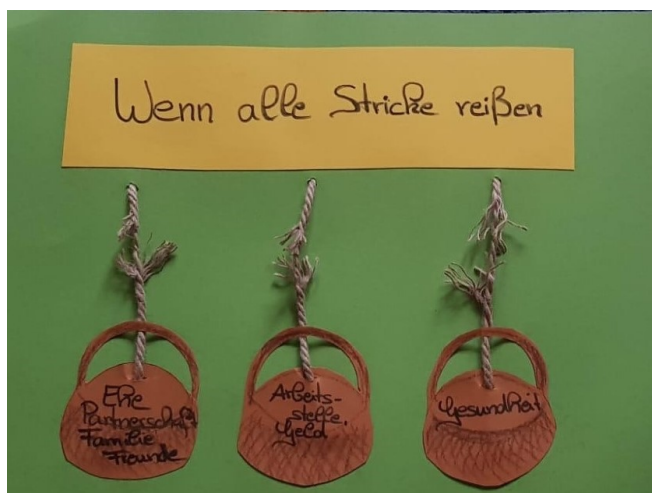 Wenn alle Stricke reißen
Ehe
Partnerschaft
Familie
Freunde
Arbeits-
stelle,
Geld
Gesundheit